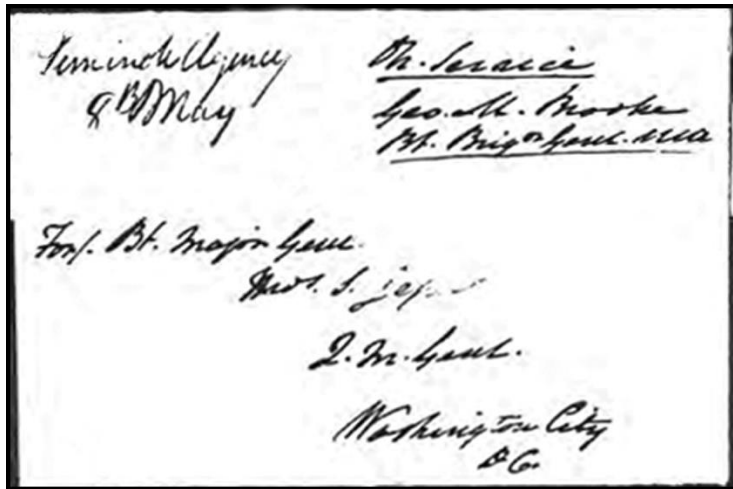 Seminole Agency
8th May
On. Service
Geo. M. Brooke
Bt. Brigr Genl. USA
For/. Bt. Major Genl.
Thos. S. Jesup
Q. M. Genl.
Washington City
D C.